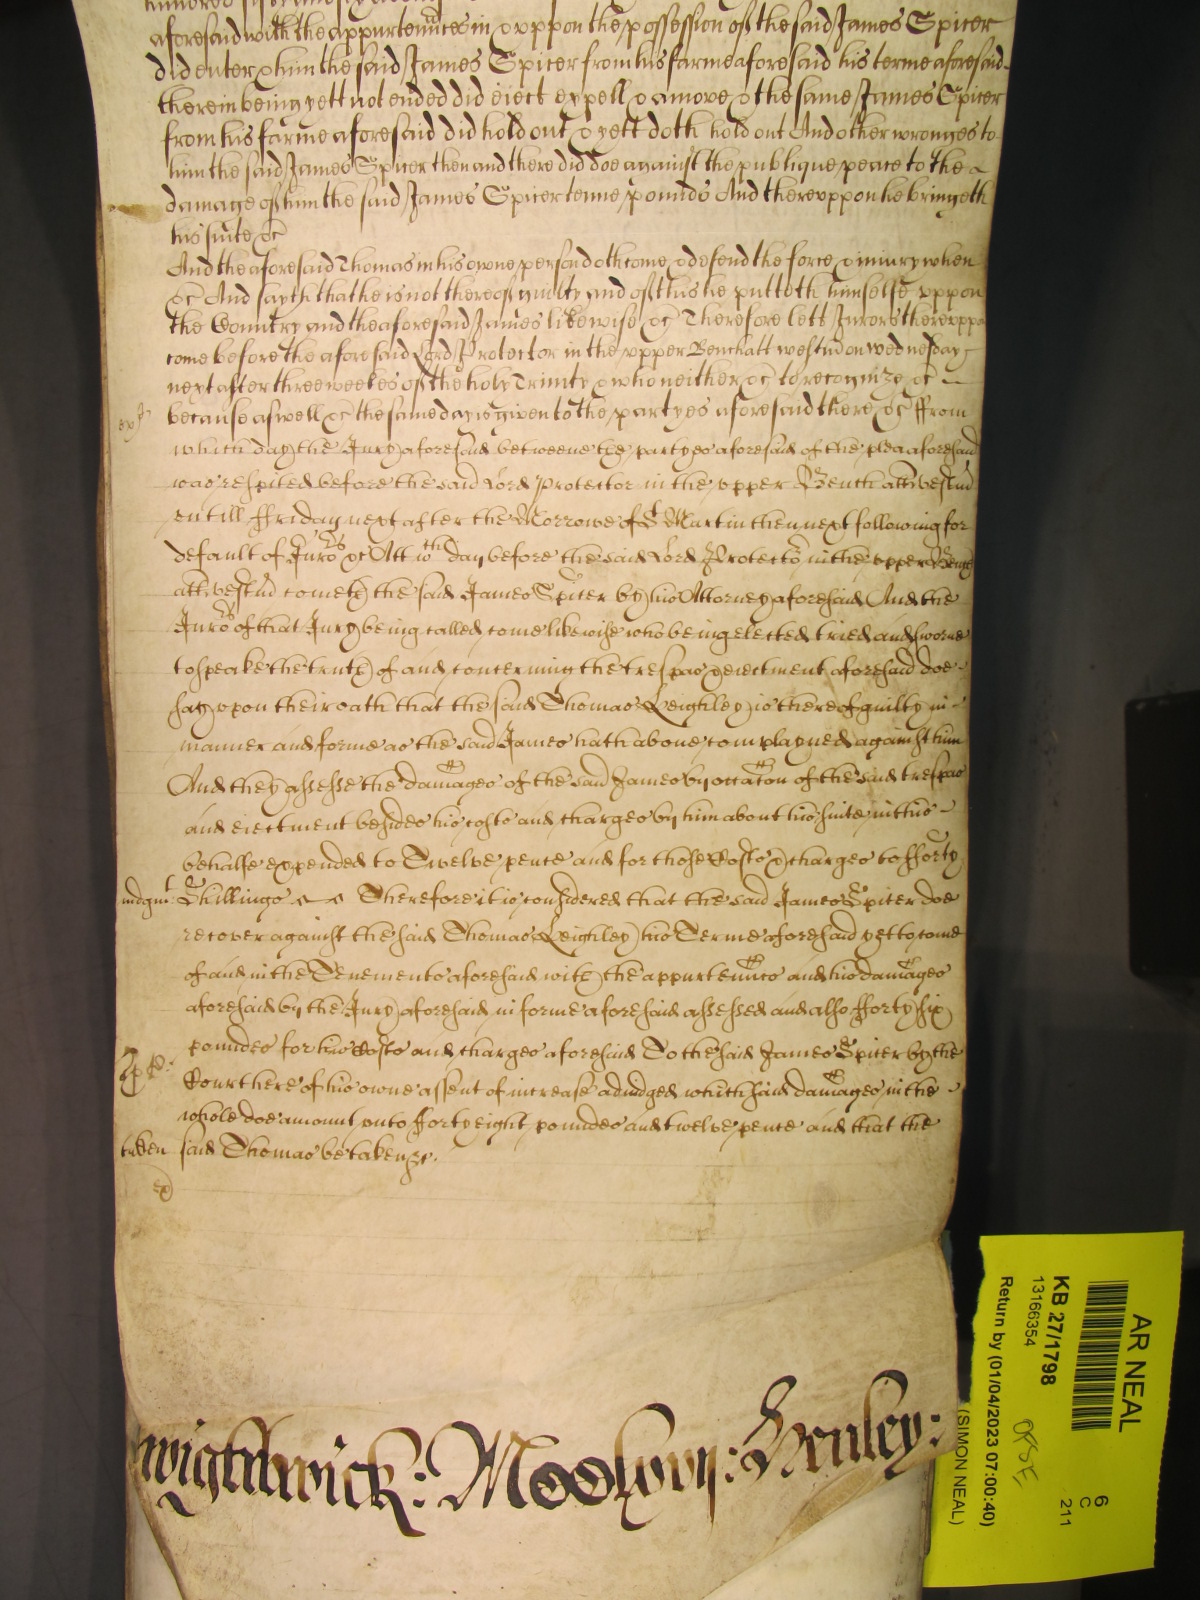 aforesaid with the appurtenn͠ces in & vppon the possession of the said James Spicer
did enter & him the said James Spicer from his farme aforesaid his terme aforesaid
therein being yett not ended did eiect expell & amove & the same James Spicer
from his farme aforesaid did hold out & yett doth hold out And other wronges to
him the said James Spicer then and there did doe against the publique peace to the
damage of him the said James Spicer tenne pounds And therevppon he bringeth
his suite &c
And the aforesaid Thomas in his owne person doth come & defend the force & iniury when
&c And sayth that he is not thereof guilty and of this he putteth himselfe vppon
the Country and the aforesaid James likewise &c Therefore lett Jurors therevppon
come before the aforesaid Lord Protector in the vpper Bench att westm̃ on wednesday
next after three weekes of the holy Trinity & who neither &c to recognize &c
because aswell &c the same day is given to the partyes aforesaid there &c ffrom
which day the Jury aforesaid betweene the partyes aforesaid of the plea aforesaid
was respited before the said Lord Protector in the vpper Bench att westm̃
vntill ffriday next after the Morrowe of St Martin then next following for
default of Jurors &c Att wch day before the said Lord Protector in the vpper Bench
att westm̃ cometh the said James Spicer by his Attorney aforesaid And the
Jurors of that Jury being called come likewise who being elected tried and sworne
to speake the truth of and concerning the trespas & eiectment aforesaid doe
say vpon their oath that the said Thomas Leighley is thereof guilty in
manner and forme as the said James hath aboue complayned against him
And they assesse the damages of the said James by occac͠on of the said trespas
and eiectment besides his costs and charges by him about his suite in this
behalfe expended to Twelve pence and for those Costs & charges to fforty
iudgmt Shillings Therefore it is considered that the said James Spicer doe
recover against the said Thomas Leighley his Terme aforesaid yet to come
of and in the Tenements aforesaid with the appurtenn͠ces and his damages
aforesaid by the Jury aforesaid in forme aforesaid assessed and also fforty six
poundes for his Costs and charges aforesaid To the said James Spicer by the
Court here of his owne assent of increase adiudged which said damages in the
whole doe amount vnto fforty eight poundes and twelve pence and that the
taken said Thomas be taken &c.
Wightwick: Moelwyn: Henley:
AR NEAL
KB 27/1798
13166354
Return by (01/04/2023 07:00:40)
(SIMON NEAL)
6
C
211